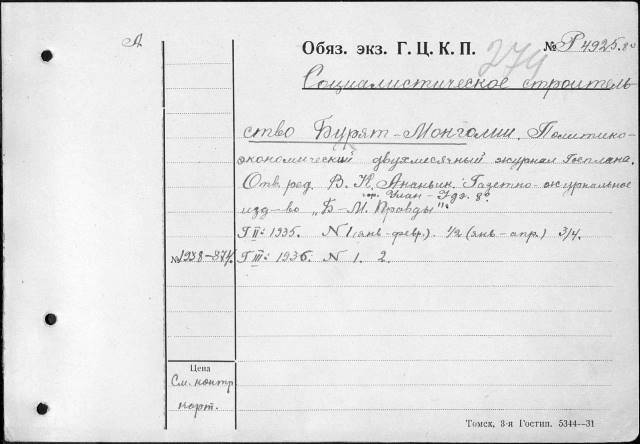 А
Обяз. экз. Г. Ц. К. П.
274
№ Р4925.80
Социалистическое строитель
ство Бурят-Монголии. Политико-
экономический двухмесячный журнал Госплана.
Отв. ред. В. Н. Ананьин. Газетно-журнальное
гор. Улан-Удэ. 8°
изд-во „Б-М. Правды".
Г II: 1935. N 1 (янв-февр.). 1/2 (янв-апр.) 3/4.
№1938-374. Г III: 1936. N 1. 2.
Цена
См. контр
карт.
Томск, 3-я Гостип. 5344—31